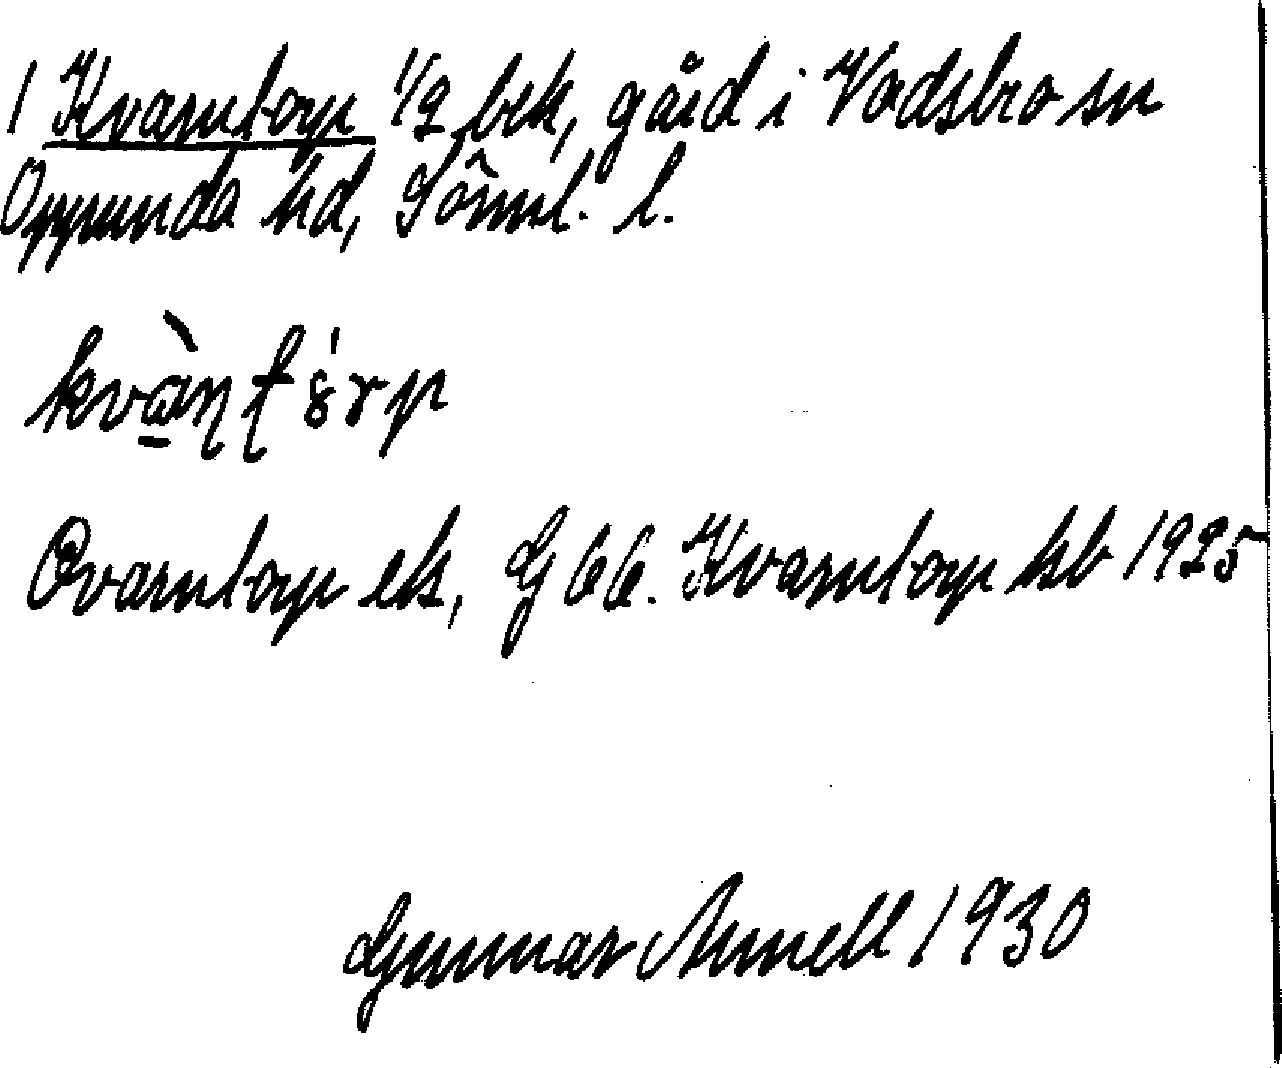 1 Kvarntorp 1/2 bek, gård i Vadsbro sn
Oppunda hd, Sörml. l.
Qvarntorp ek, G 66. Kvarntorp hb 1925
Gunnar Arnell 1930